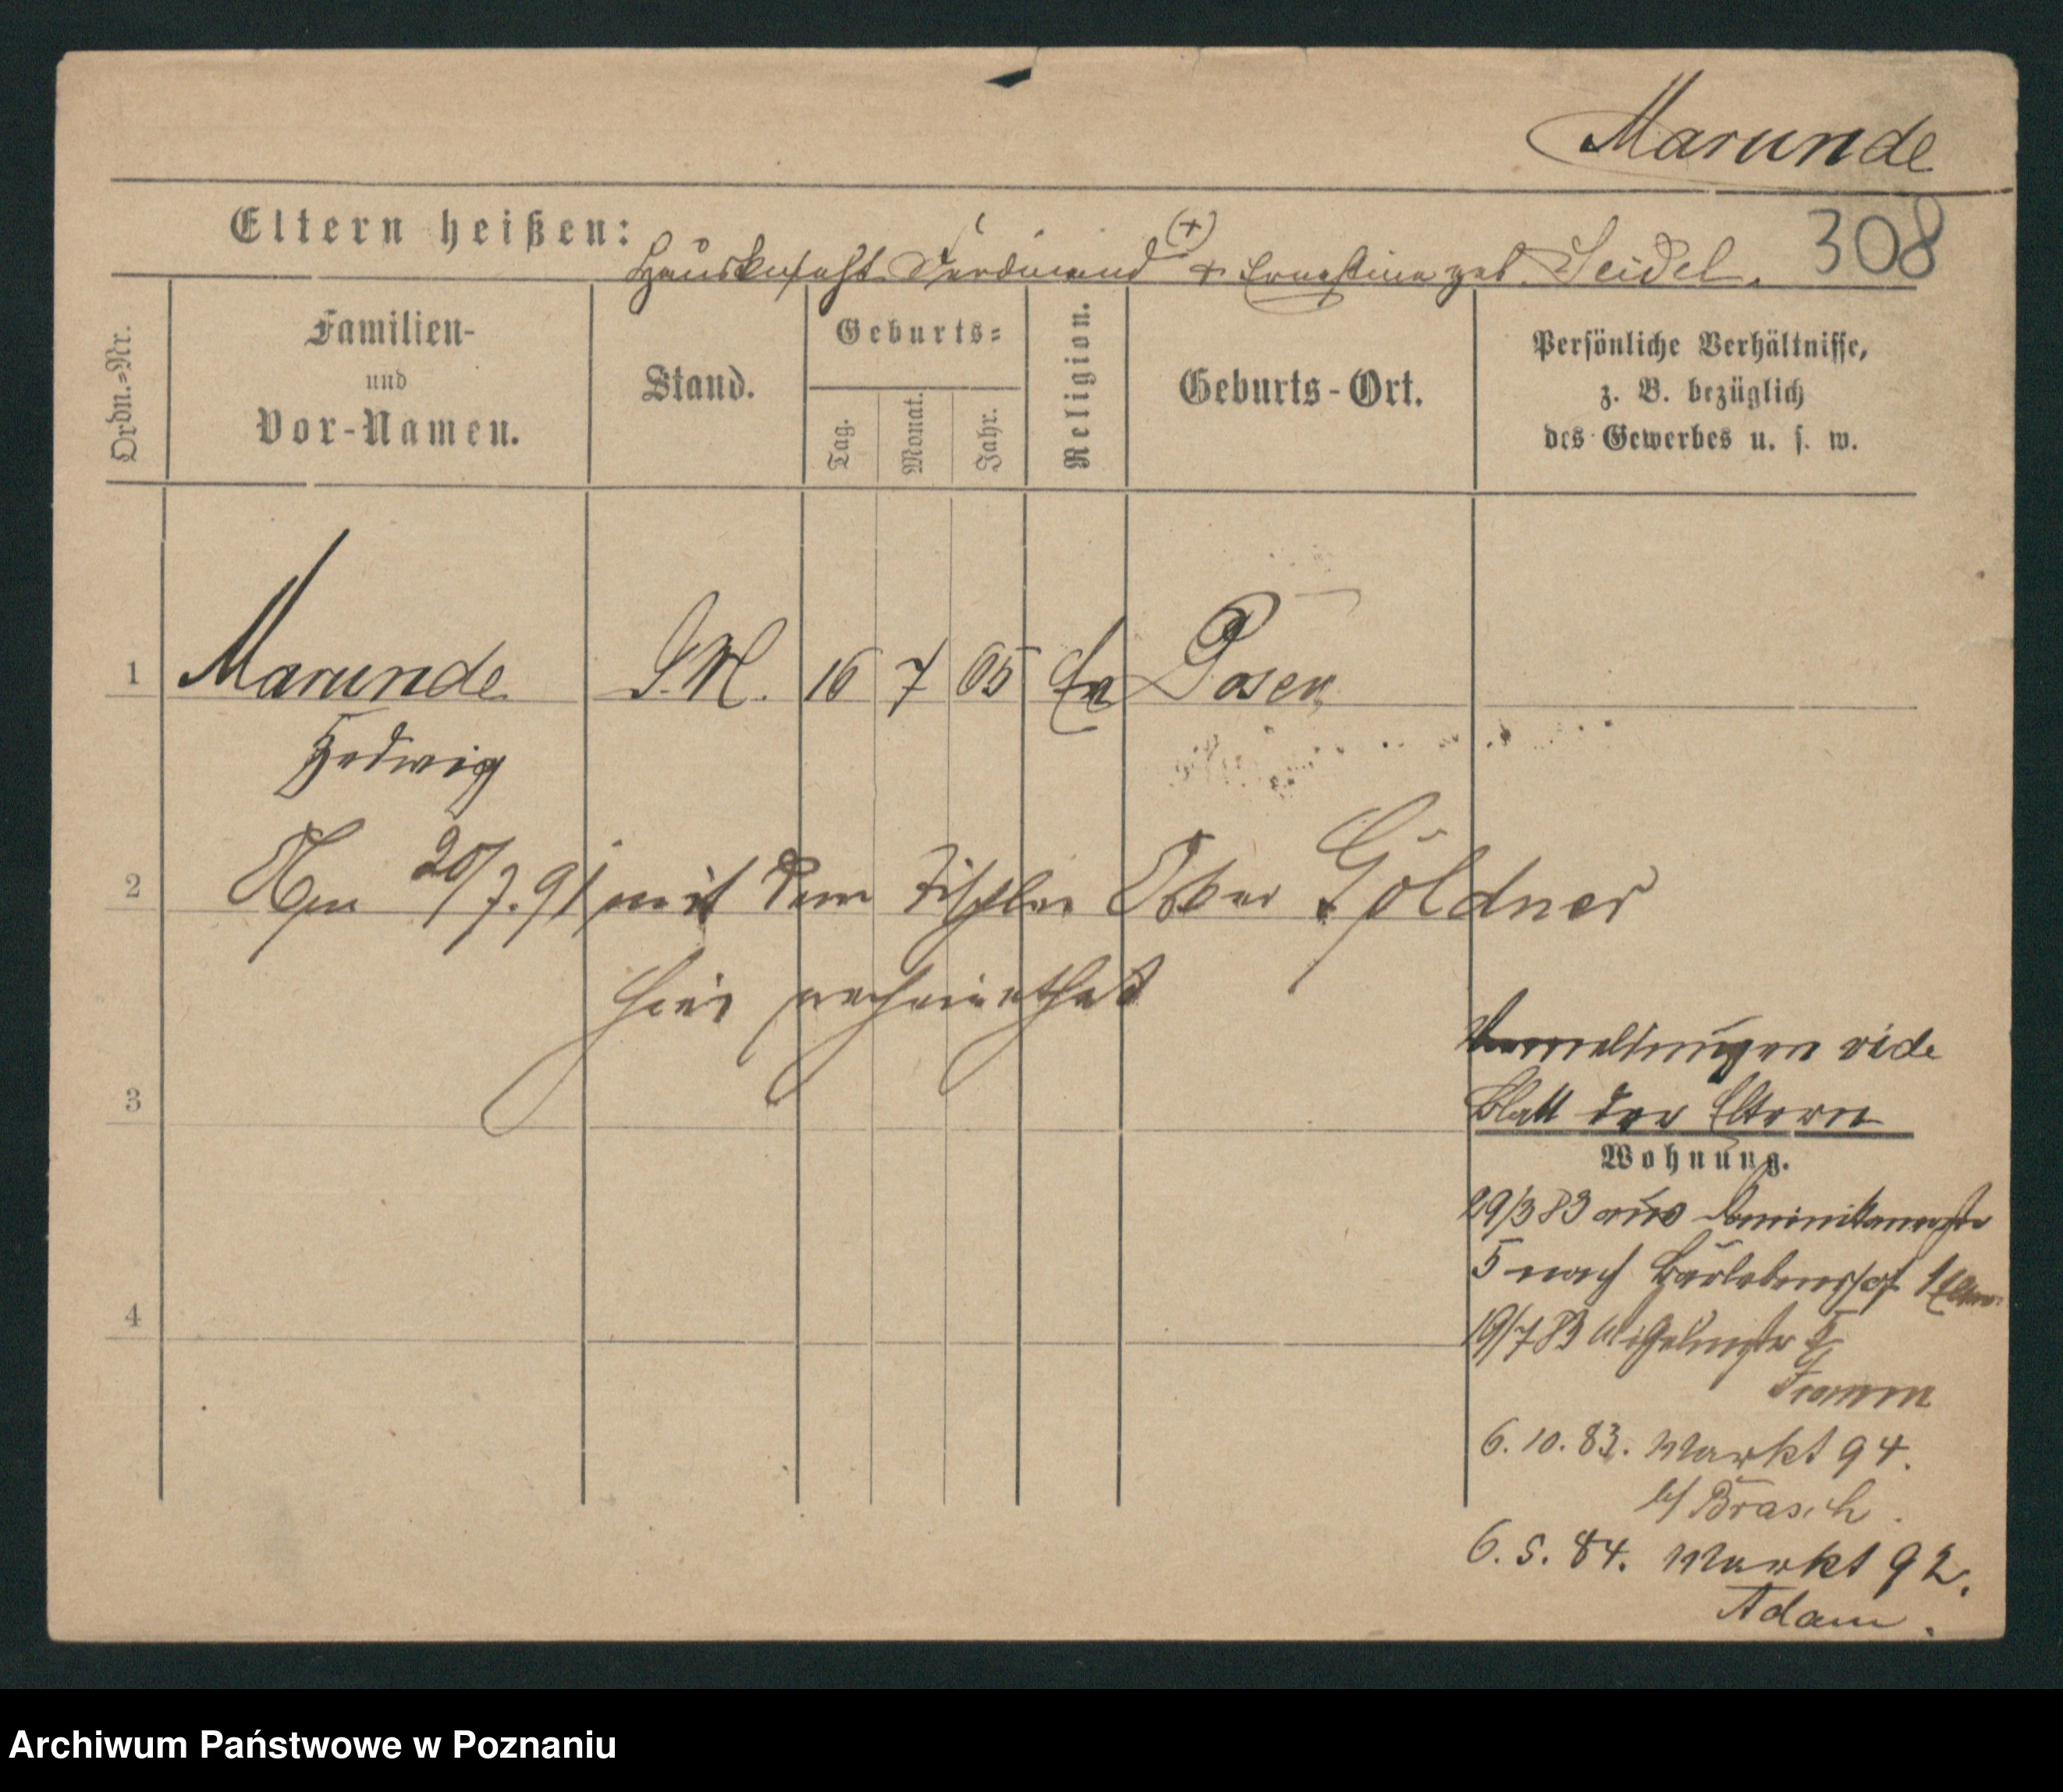 Marunde
308
Eltern heißen: Hausknecht Ferdinand (+) & Ernestine geb. Seidel.
Ordn.=Nr.
Familien-
und
Vor-Namen.
Stand.
Geburts=
Tag.
Monat.
Jahr.
Religion.
Geburts-Ort.
Persönliche Verhältnisse,
z. B. bezüglich
des Gewerbes u. s. w.
1 Marunde D.M. 16 7 65 Ev Posen
Hedwig
2 Am 20/7.91 mit dem Tischler Oskar Göldner
hier verheirathet
3
4
vide
Blatt der Eltern
Wohnung.
29/3 83 aus Dominikanerstr
5 nach 1
19/7 83
6. 10. 83. Markt 94.
b/ Brasch.
6. 5. 84. Markt 92.
Adam.
Archiwum Państwowe w Poznaniu